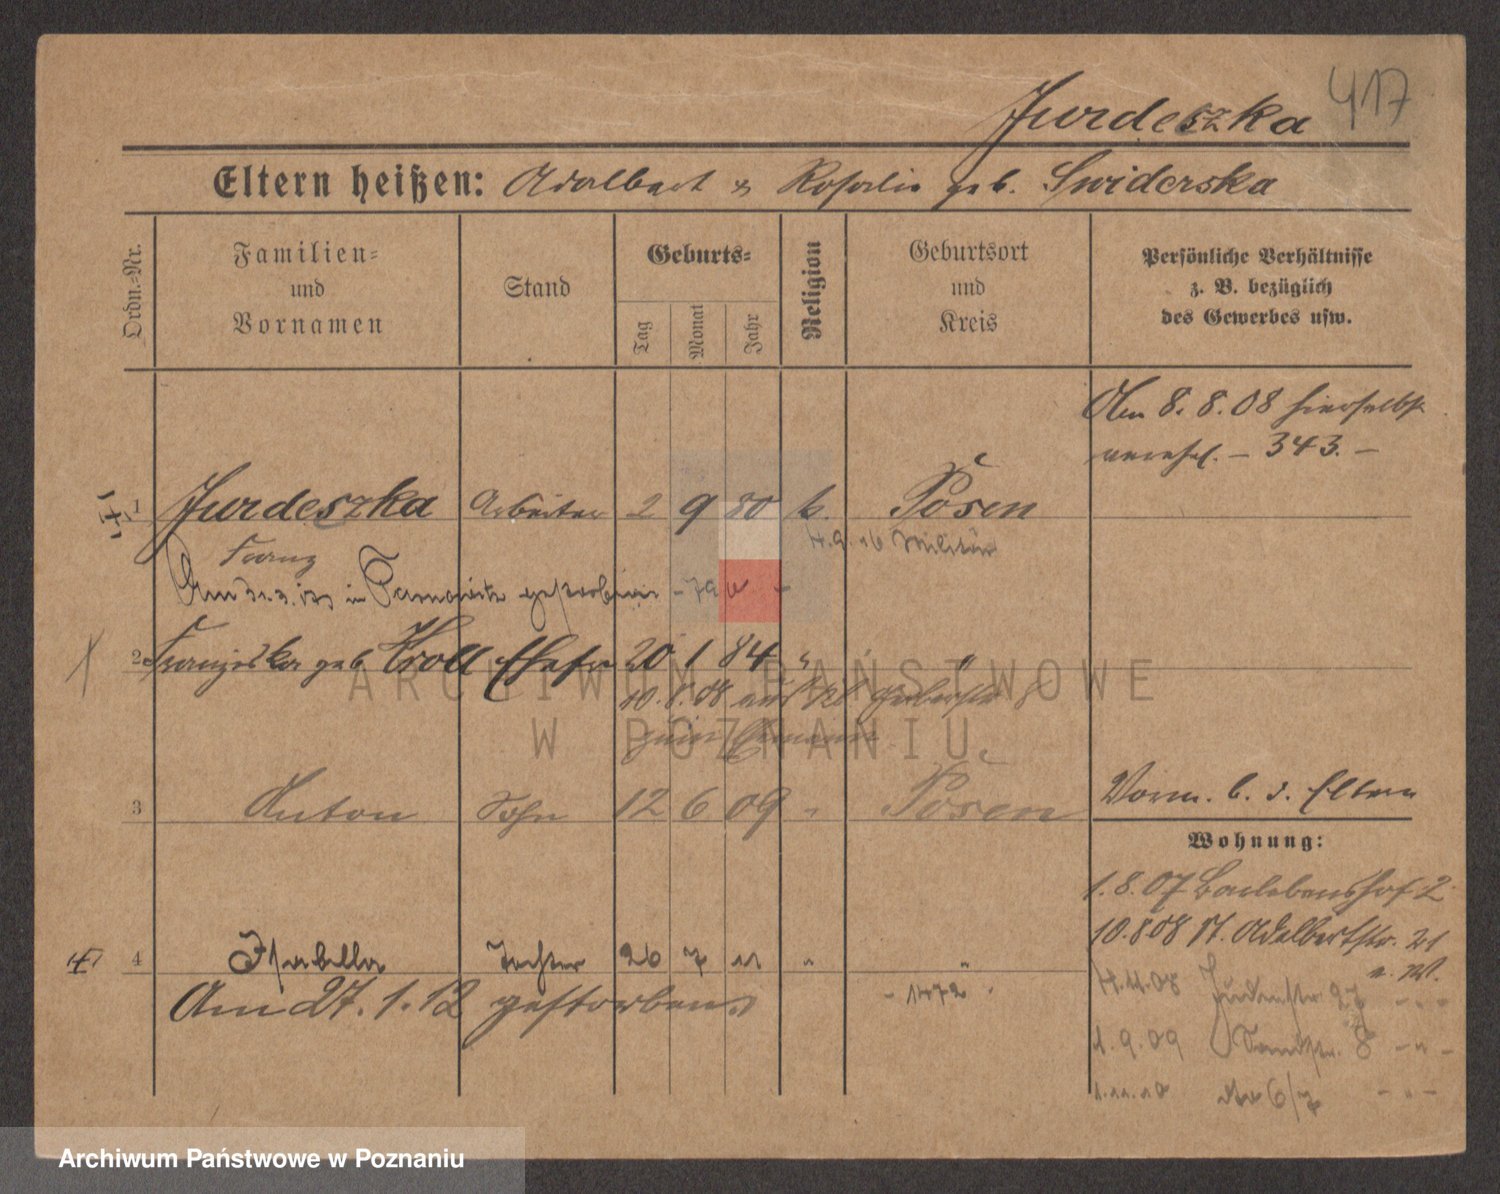 417
Jurdeszka
Eltern heißen: Adalbert & Rosalie geb. Swiderska
Ordn.-Nr.
Familien- und Vornamen
Stand
Geburts-
Tag
Monat
Jahr
Religion
Geburtsort und Kreis
Persönliche Verhältnisse
z. B. bezüglich
des Gewerbes usw.
Am 8. 8. 08 hierselbst
verehel. – 343. –
1 Jurdeszka Arbeiter 2 9 80 k. Posen
Franz
4. 9. 16 Militär
Am 31. 3. in gestorben
2 Franziska geb. Kroll Ehefr 20 1 84 " "
10. 8. 08 aus
zum Ehemann
3 Anton Sohn 12 6 09 " Posen
Vorm. b. d. Eltern
Wohnung:
1. 8. 07 Barlebenshof 2
10. 8 08 St. Adalbertstr. 21
n. W.
4 Isabella Tochter 26 7 11 " "
Am 27. 1. 12 gestorben
- 1472 -
4. 11. 08 Judenstr. 27 - " -
1. 9. 09 Sandstr. 8 - " -
1. 11. 10 6/7 - " -
ARCHIWUM PAŃSTWOWE
W POZNANIU
Archiwum Państwowe w Poznaniu